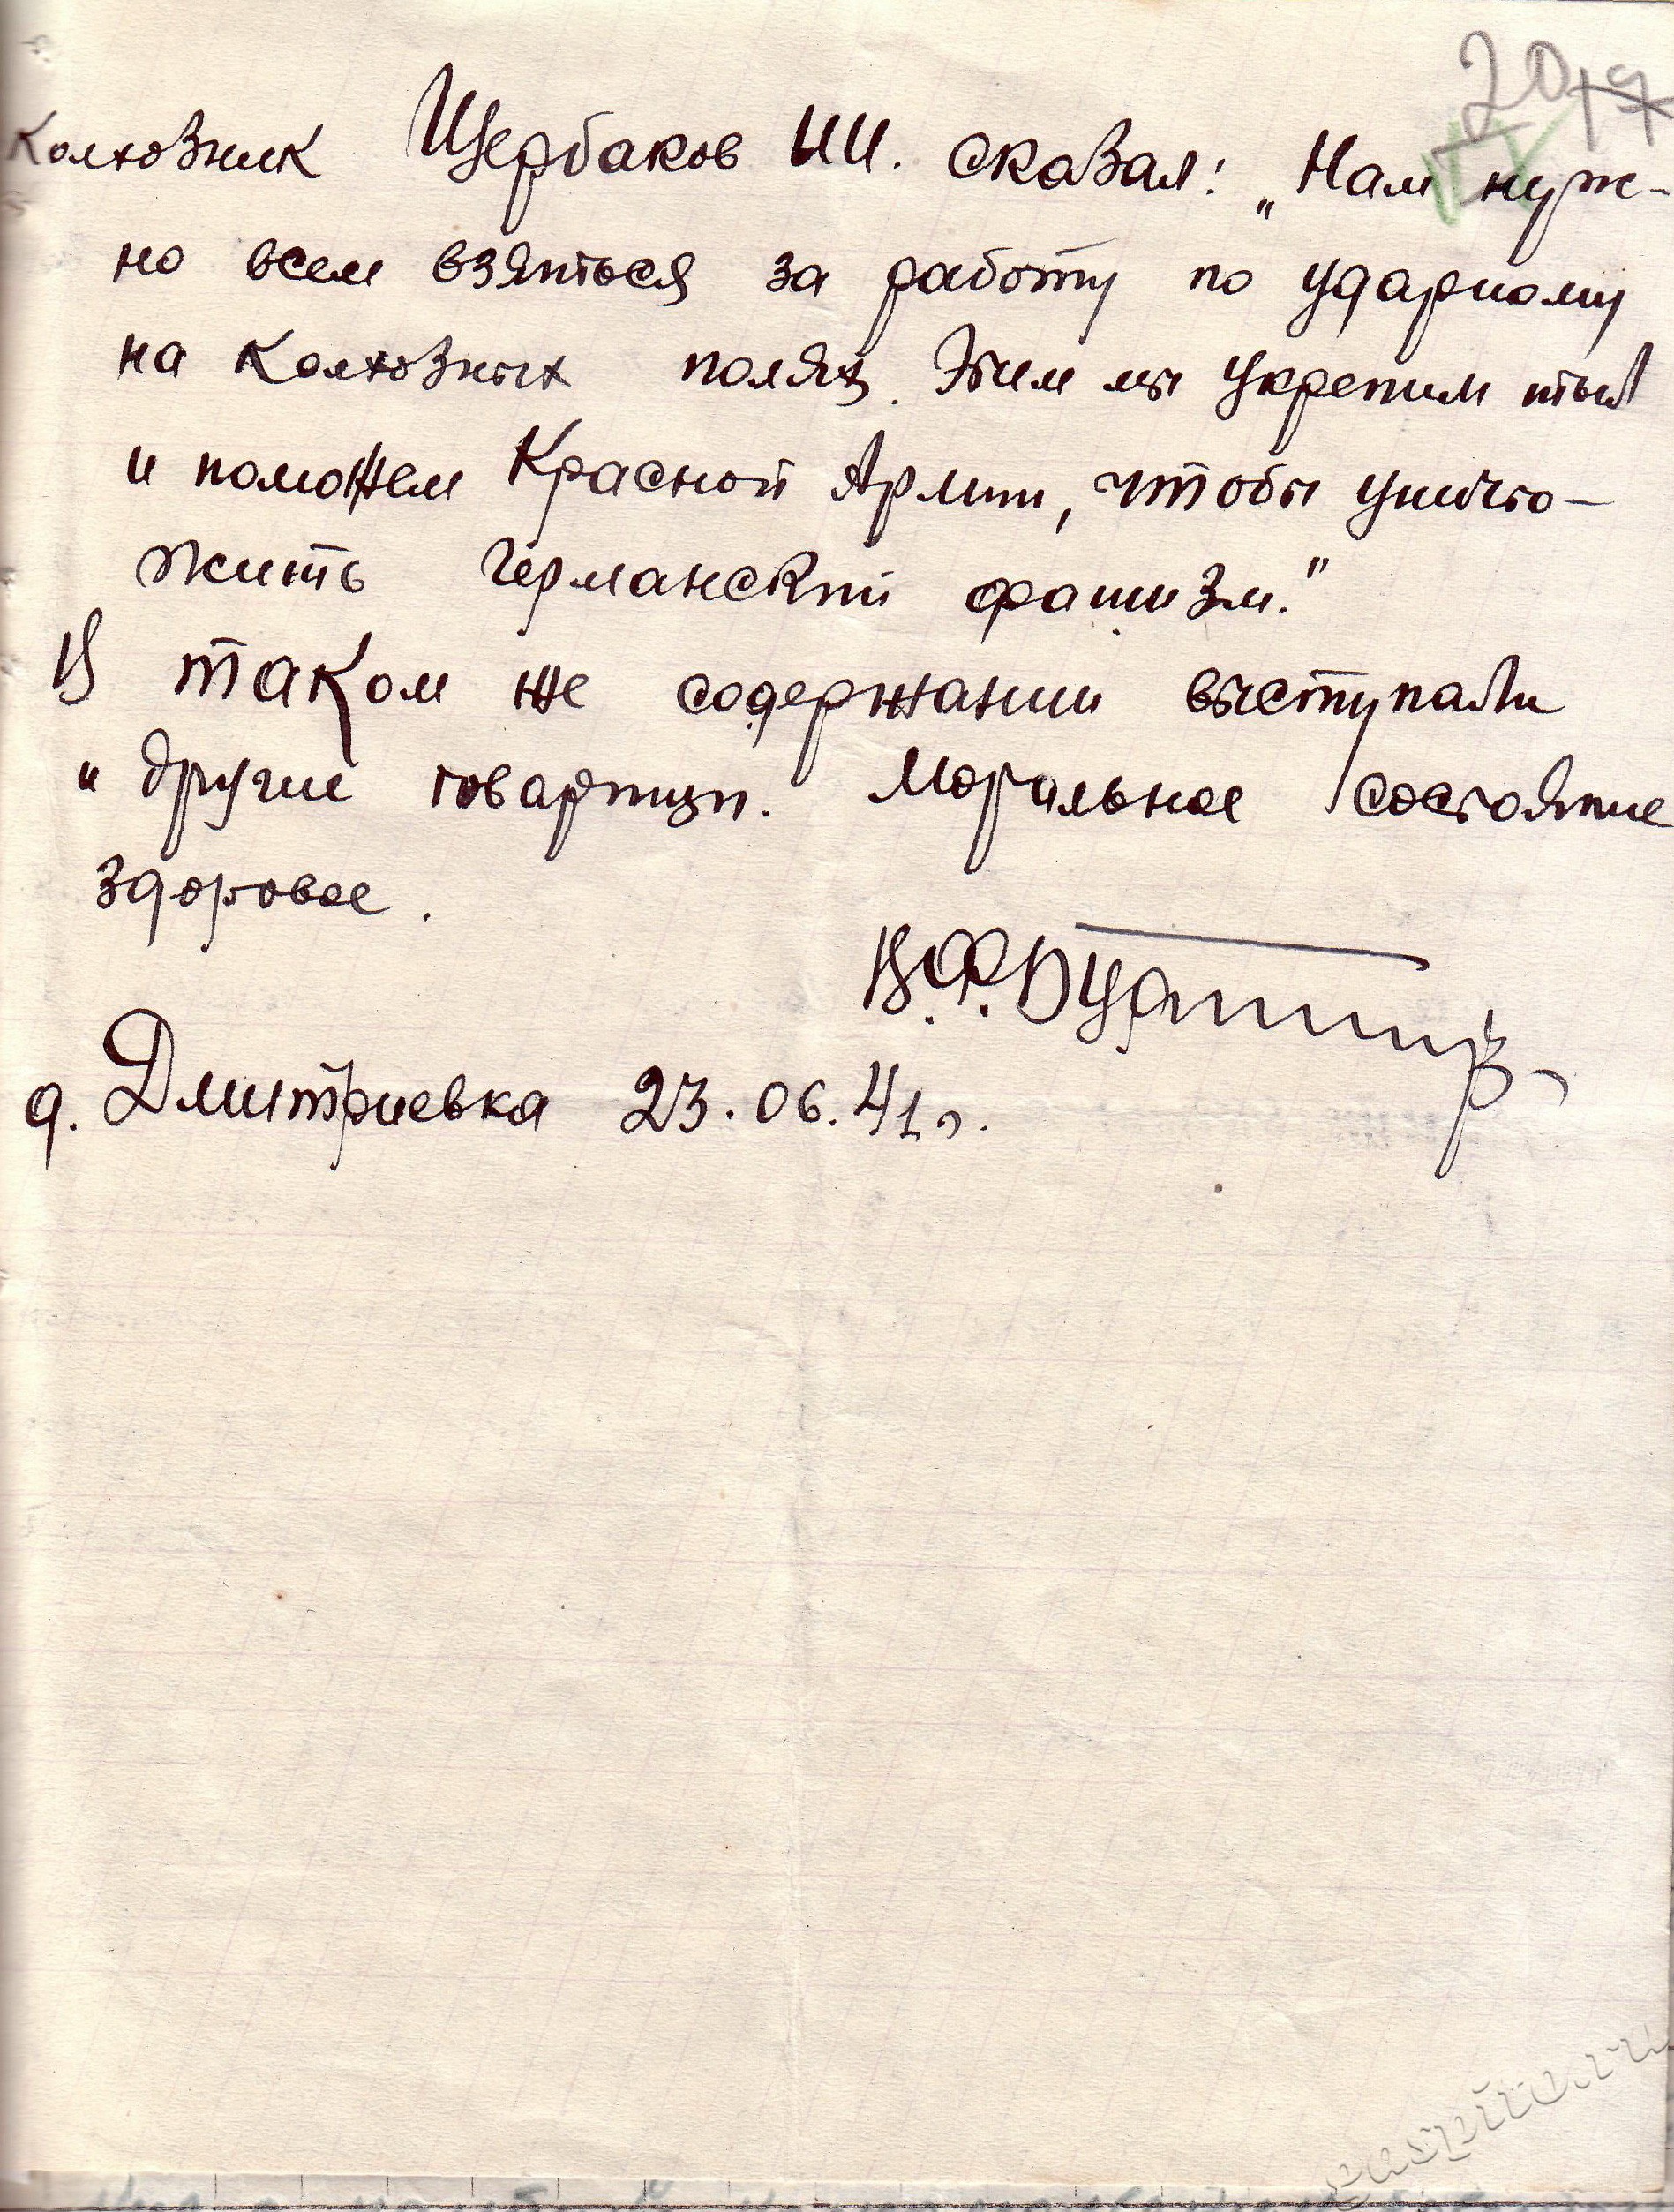 20 19
Колхозник Щербаков И.И. сказал: „Нам нуж-
но всем взяться за работу по ударному
на колхозных полях. Этим мы укрепим тыл
и поможем Красной Армии, чтобы уничто-
жить германский фашизм."
В таком же содержании выступали
и другие товарищи. Моральное состояние
здоровое.
В.Ф.
д. Дмитриевка 23.06.41 г.
gaspito.ru